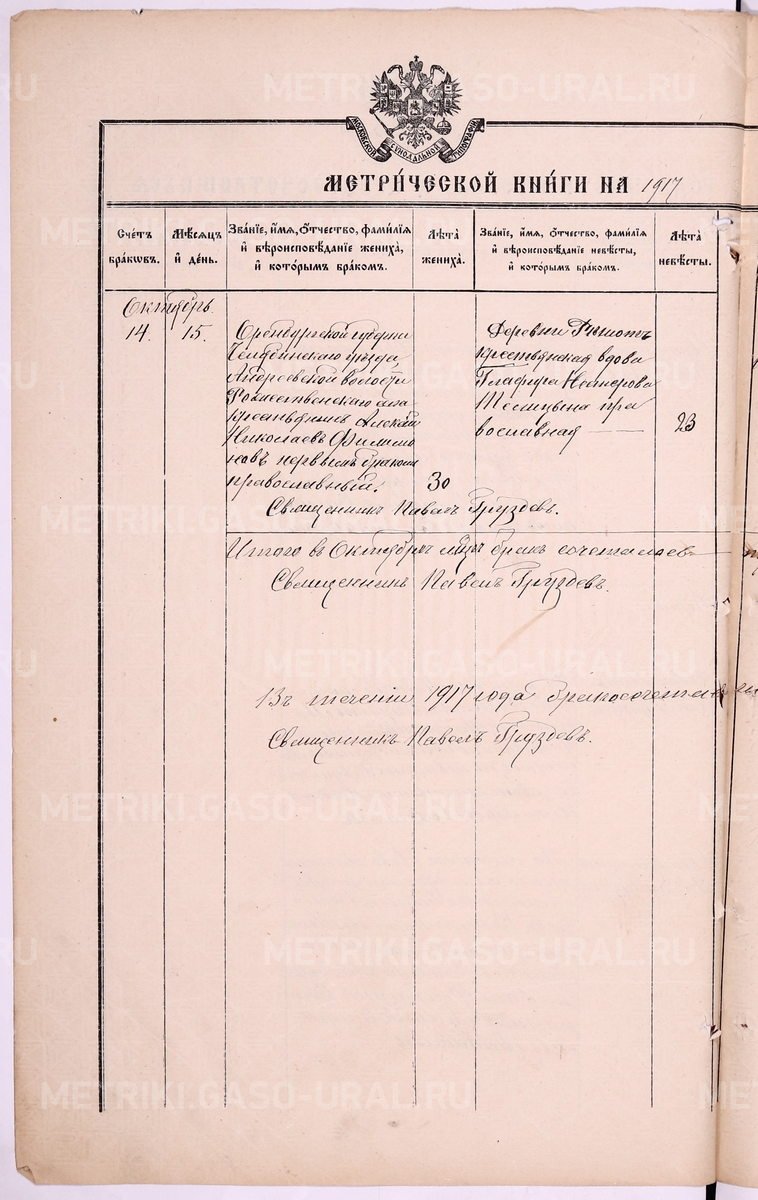 МОСКОВСКОЙ СѴНОДАЛЬНОЙ ТИПОГРАФІИ
МЕТРИ́ЧЕСКОЙ КНИ́ГИ НА 1917
Сче́тъ бра́ковъ.
Мѣ́сяцъ и́ де́нь.
Зва́нїе, и́мя, ѻ́тчество, фами́лїя и́ вѣроисповѣ́данїе жениха̀, и́ кото́рымъ бра́комъ.
Лѣта̀ жениха̀.
Зва́нїе, и́мя, ѻ́тчество, фами́лїя и́ вѣроисповѣ́данїе невѣ́сты, и́ кото́рымъ бра́комъ.
Лѣта̀ невѣ́сты.
Октябрь.
14. 15.
Оренбургской губерни
Челябинскаго уѣзда
Андреевской волости
Рожественскаго села
крестьянинъ Алексѣй
Николаевъ Филимо
новъ первымъ бракомъ
православный.
30
Деревни
крестьянская вдова
Глафира
пра
вославная
23
Священникъ Павелъ Груздевъ.
Итого въ Октябрѣ м̃цѣ бракъ сочетался
Священникъ Павелъ Груздевъ.
Въ теченіи 1917 года
Священникъ Павелъ Груздевъ.
METRIKI.GASO-URAL.RU